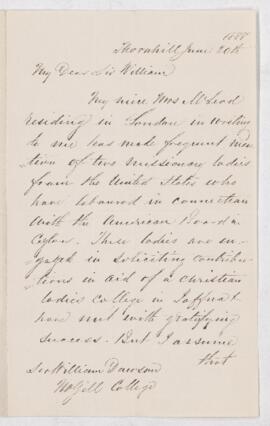 1888
Thornhill June 20th
My Dear Sir William
My niece Mrs McLeod
residing in London in writing
to me has made frequent men
tion of two missionary ladies
from the United States who
have laboured in connection
with the American Board in
Ceylon. These ladies are en
gaged in soliciting contribu
tions in aid of a christian
ladies College in Jaffna &
have met with gratifying
success. But I assume
that
Sir William Dawson
McGill College